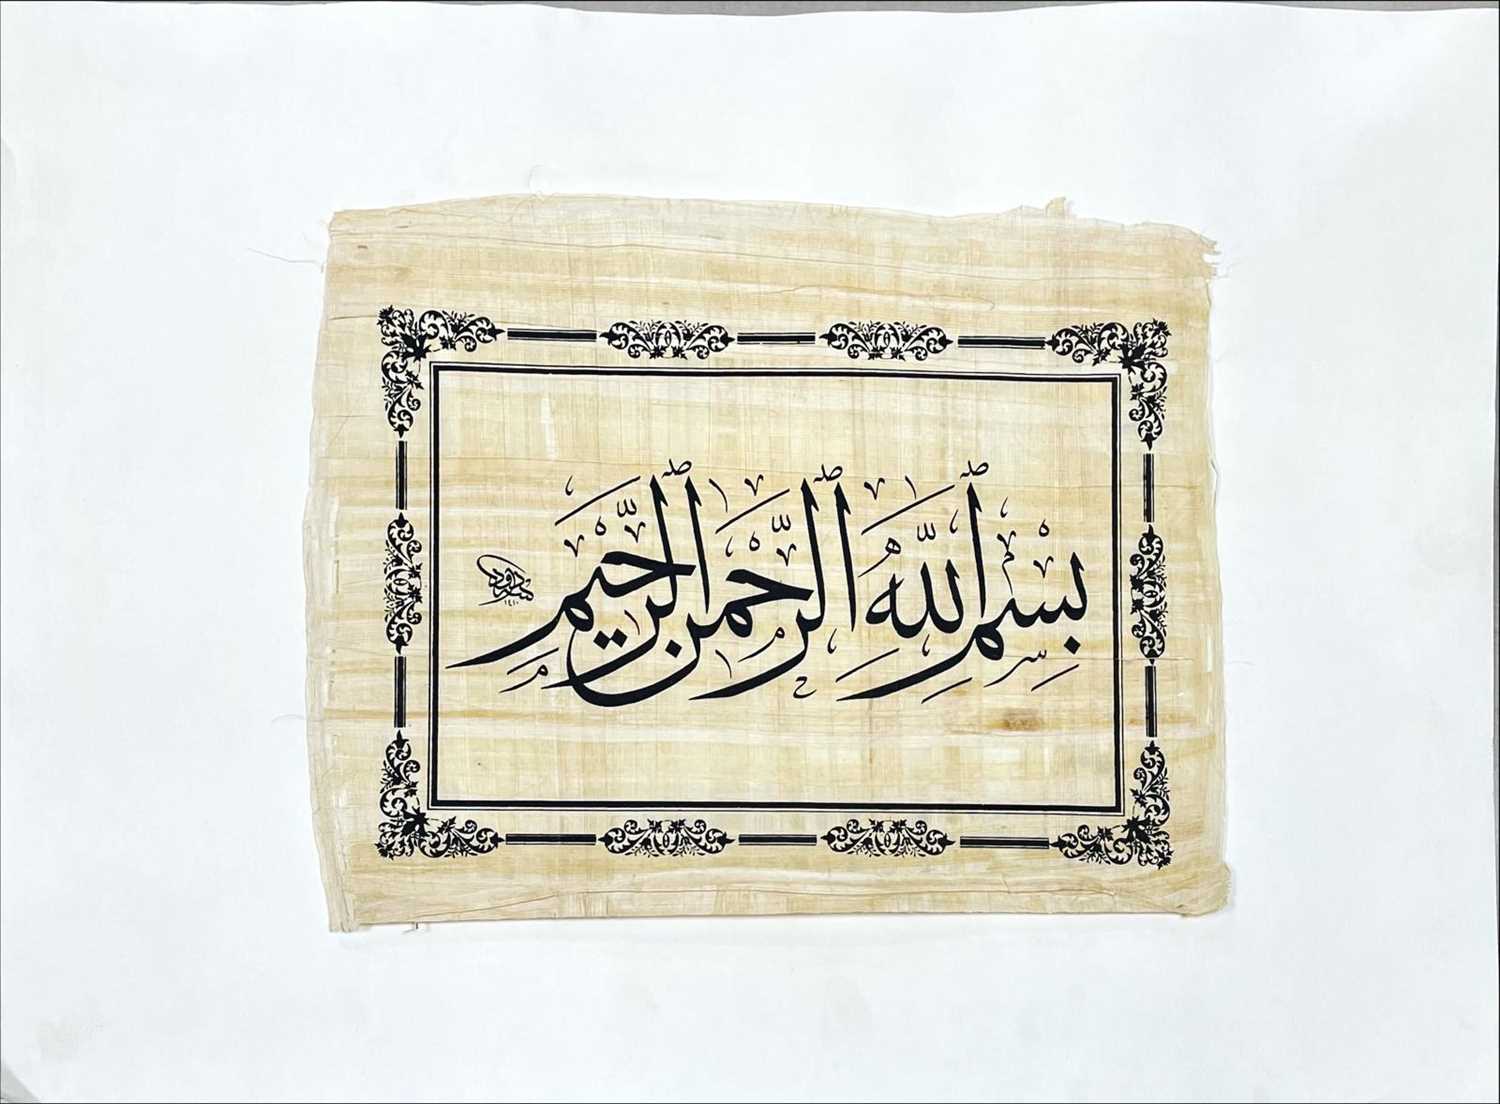 بِسْمِ ٱللَّهِ ٱلرَّحْمٰنِ ٱلرَّحِيمِ
١٤١٠